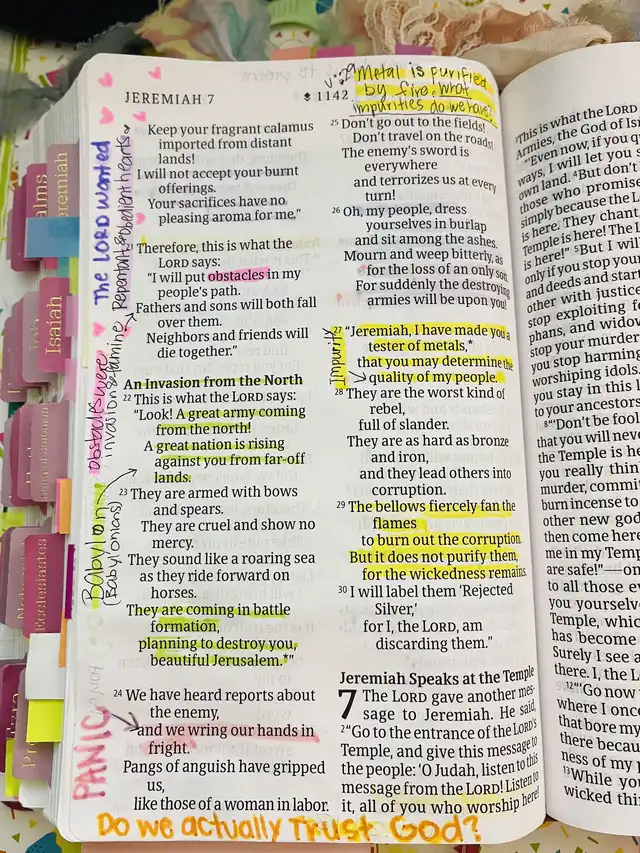 JEREMIAH 7
1142
Metal is purified
by fire. what
impurities do we have?
Keep your fragrant calamus
imported from distant
lands!
I will not accept your burnt
offerings.
Your sacrifices have no
pleasing aroma for me.”
21 Therefore, this is what the
LORD says:
“I will put obstacles in my
people's path.
Fathers and sons will both fall
over them.
Neighbors and friends will
die together.”
An Invasion from the North
22 This is what the LORD says:
“Look! A great army coming
from the north!
A great nation is rising
against you from far-off
lands.
23 They are armed with bows
and spears.
They are cruel and show no
mercy.
They sound like a roaring sea
as they ride forward on
horses.
They are coming in battle
formation,
planning to destroy you,
beautiful Jerusalem.*”
24 We have heard reports about
the enemy,
and we wring our hands in
fright.
Pangs of anguish have gripped
us,
like those of a woman in labor.
25 Don't go out to the fields!
Don't travel on the roads!
The enemy's sword is
everywhere
and terrorizes us at every
turn!
26 Oh, my people, dress
yourselves in burlap
and sit among the ashes.
Mourn and weep bitterly, as
for the loss of an only son.
For suddenly the destroying
armies will be upon you!
27 “Jeremiah, I have made you a
tester of metals,*
that you may determine the
quality of my people.
28 They are the worst kind of
rebel,
full of slander.
They are as hard as bronze
and iron,
and they lead others into
corruption.
29 The bellows fiercely fan the
flames
to burn out the corruption.
But it does not purify them,
for the wickedness remains.
30 I will label them ‘Rejected
Silver,’
for I, the LORD, am
discarding them.”
Jeremiah Speaks at the Temple
7 The LORD gave another mes-
sage to Jeremiah. He said,
2 “Go to the entrance of the LORD's
Temple, and give this message to
the people: ‘O Judah, listen to this
message from the LORD! Listen to
it, all of you who worship here!
The LORD wanted
Repentant & obedient hearts
obstacles were
invasions & famine
Babylon
(Babylonians)
PANIC
Impurity
Do we actually Trust God?
alms
Jeremiah
Isaiah
Ecclesiastes
This is what the LORD
Armies, the God of Is
“‘Even now, if you q
ways, I will let you s
own land. 4 But don't
those who promise
simply because the L
is here. They chant
Temple is here! The L
is here!” 5 But I will
only if you stop your
and deeds and start
other with justice
stop exploiting f
phans, and widow
stop your murder
you stop harmin
worshiping idols.
you stay in this l
to your ancestors
8 “‘Don't be fool
that you will neve
the Temple is he
you really thin
murder, commit
burn incense to
other new god
then come here
me in my Temp
are safe!”—on
to all those ev
you yourselv
Temple, whic
has become
Surely I see a
there. I, the L
12 “‘Go now
where I once
that bore my
there becau
ness of my p
13 While you
wicked thin